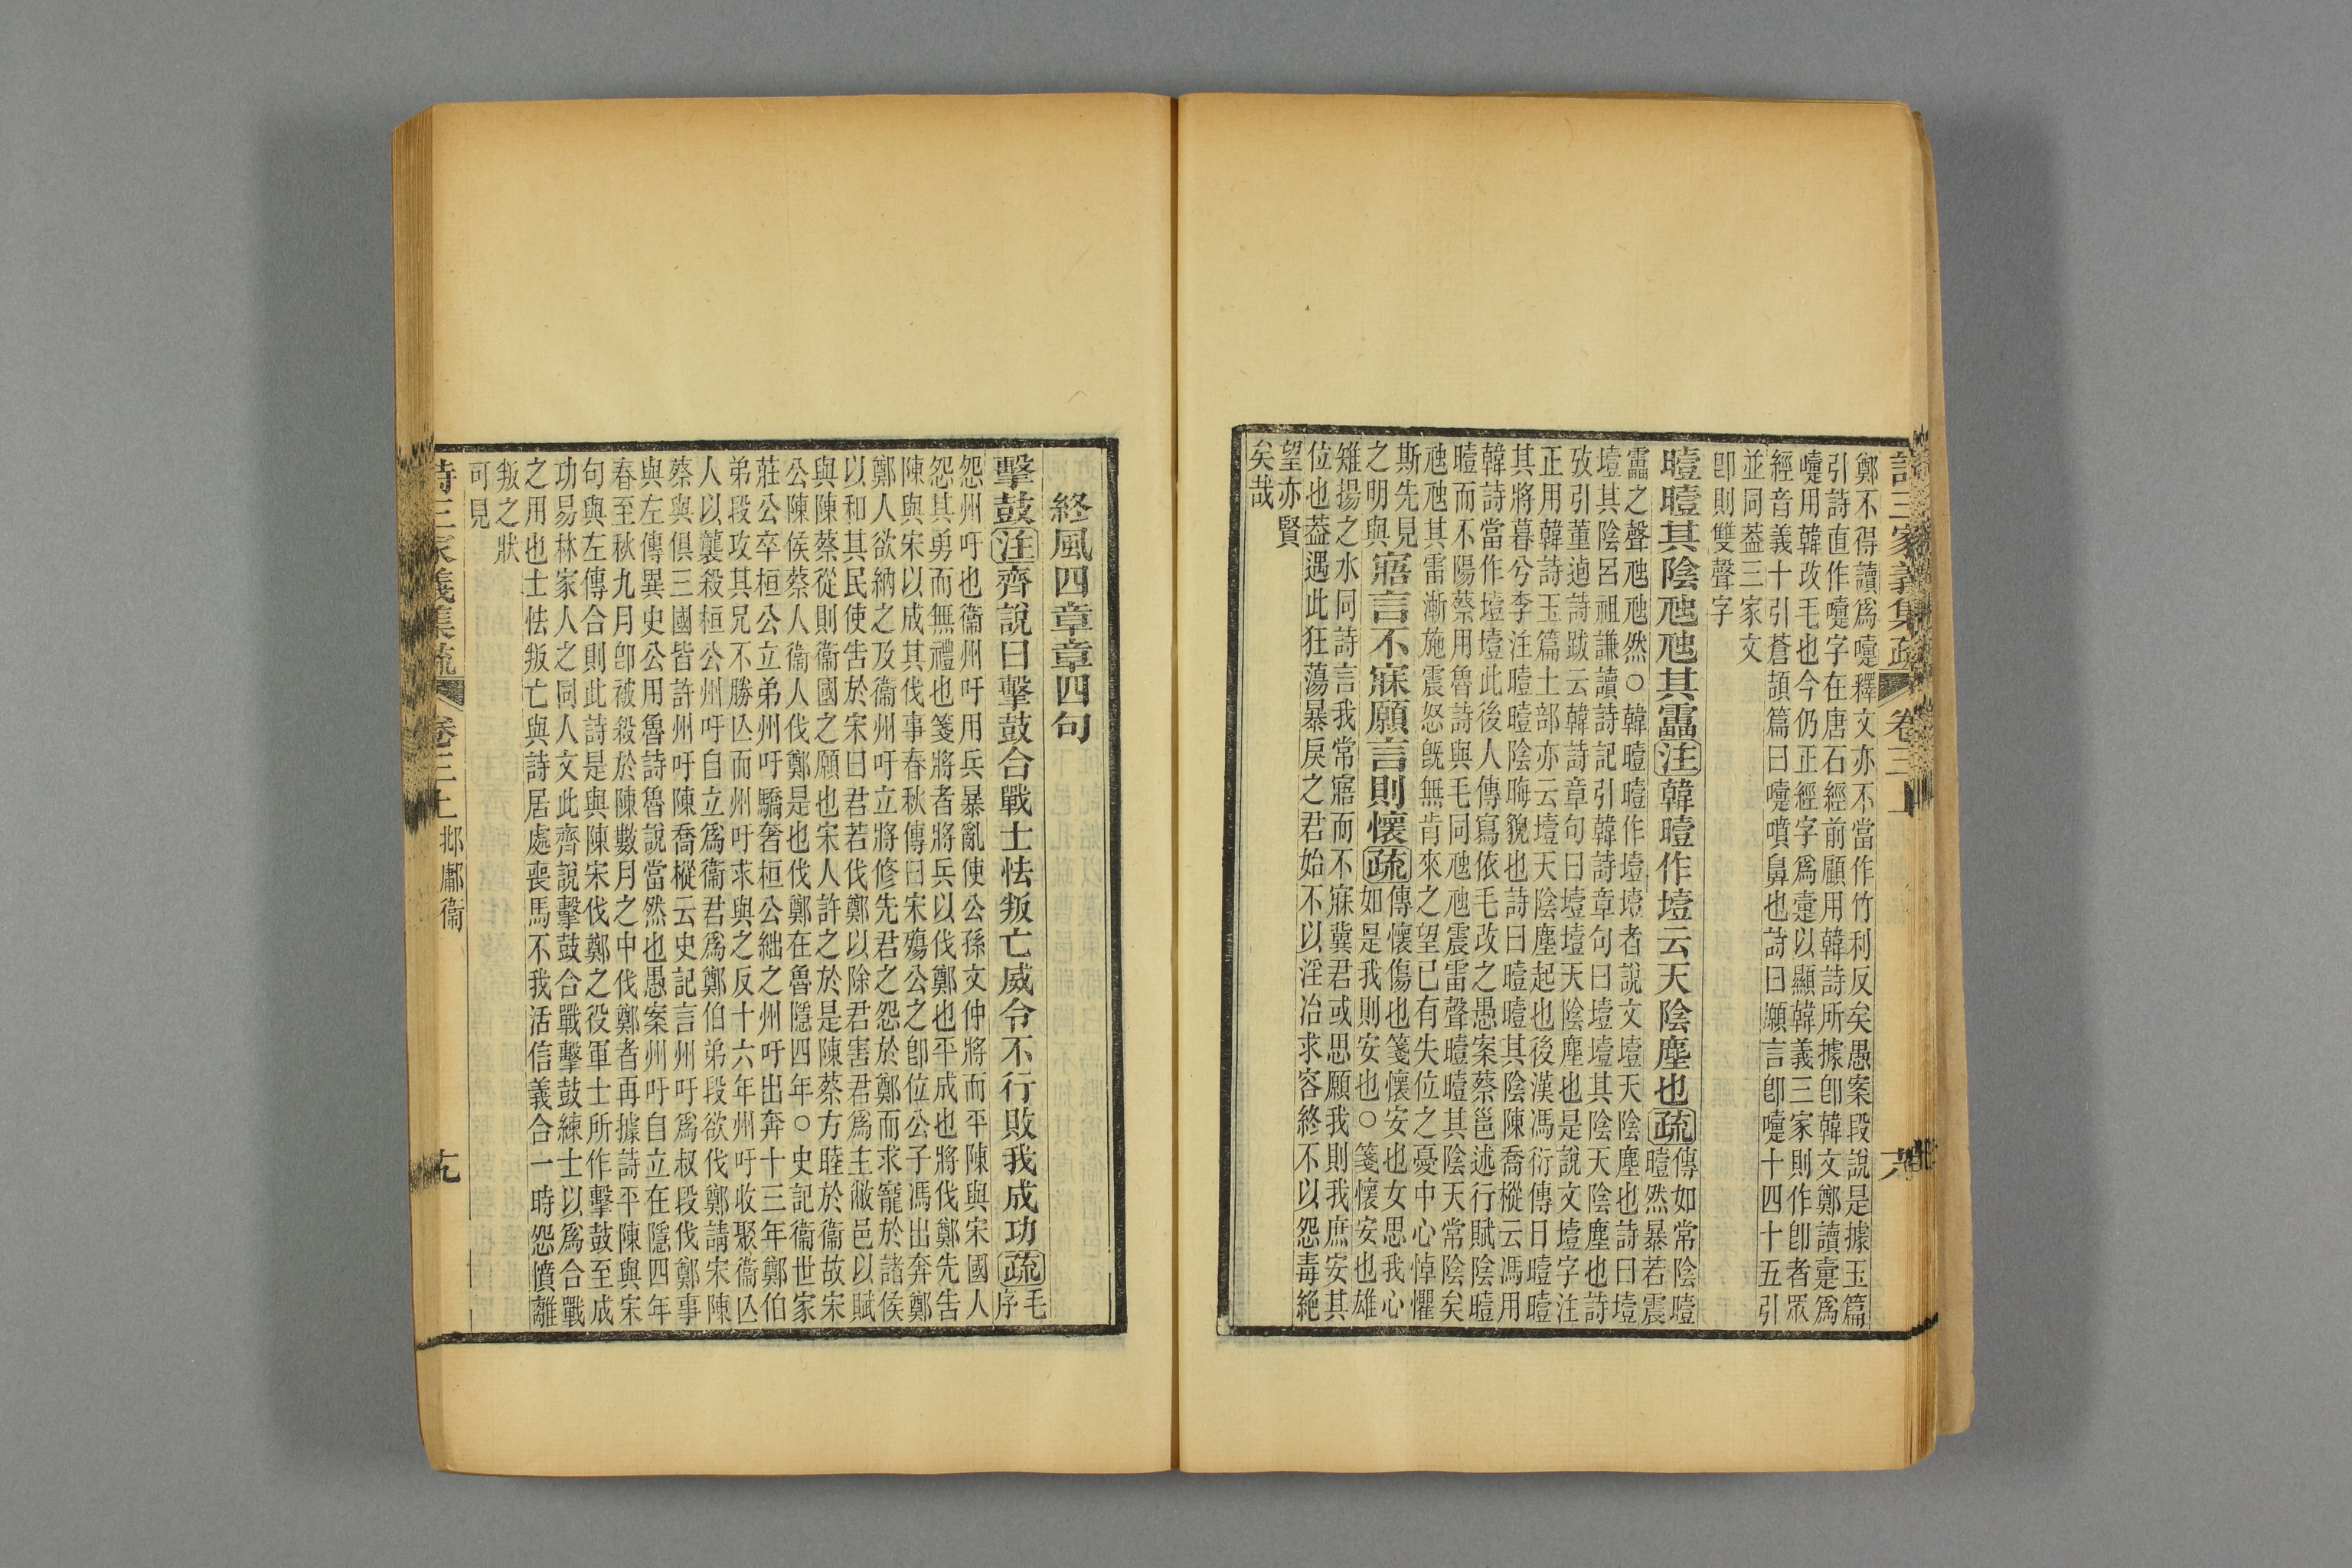 詩三家義集疏 卷三上
鄭不得讀爲嚏釋文亦不當作竹利反矣愚案段說是據玉篇
引詩直作嚏字在唐石經前顧用韓詩所據卽韓文鄭讀疐爲
嚏用韓改毛也今仍正經字爲疐以顯韓義三家則作卽者眾
經音義十引蒼頡篇曰嚏噴鼻也詩曰願言卽嚏十四十五引
並同葢三家文
卽則雙聲字
曀曀其陰虺虺其靁注韓曀作壇云天陰塵也疏傳如常陰曀
曀然暴若震
靁之聲虺虺然○韓曀曀作壇壇者說文壇天陰塵也詩曰壇
壇其陰呂祖謙讀詩記引韓詩章句曰壇壇其陰天陰塵也詩
攷引董逌詩跋云韓詩章句曰壇壇天陰塵也是說文壇字注
正用韓詩玉篇土部亦云壇天陰塵起也後漢馮衍傳日曀曀
其將暮兮李注曀曀陰晦貌也詩曰曀曀其陰陳喬樅云馮用
韓詩當作壇壇此後人傳寫依毛改之愚案蔡邕述行賦陰曀
曀而不陽蔡用魯詩與毛同虺虺震雷聲曀曀其陰天常陰矣
虺虺其雷漸施震怒旣無肯來之望已有失位之憂中心悼懼
斯先見
之明與
寤言不寐願言則懷疏傳懷傷也箋懷安也女思我心
如是我則安也○箋懷安也雄
雉揚之水同詩言我常寤而不寐冀君或思願我則我庶安其
位也葢遇此狂蕩暴戾之君始不以淫冶求容終不以怨毒絕
望亦賢
矣哉
終風四章章四句
擊鼓注齊說曰擊鼓合戰士怯叛亡威令不行敗我成功疏毛
序
怨州吁也衞州吁用兵暴亂使公孫文仲將而平陳與宋國人
怨其勇而無禮也箋將者將兵以伐鄭也平成也將伐鄭先告
陳與宋以成其伐事春秋傳曰宋殤公之卽位公子馮出奔鄭
鄭人欲納之及衞州吁立將修先君之怨於鄭而求寵於諸侯
以和其民使告於宋曰君若伐鄭以除君害君爲主敝邑以賦
與陳蔡從則衞國之願也宋人許之於是陳蔡方睦於衞故宋
公陳侯蔡人衞人伐鄭是也伐鄭在魯隱四年○史記衞世家
莊公卒桓公立弟州吁驕奢桓公絀之州吁出奔十三年鄭伯
弟段攻其兄不勝亾而州吁求與之反十六年州吁收聚衞亾
人以襲殺桓公州吁自立爲衞君爲鄭伯弟段欲伐鄭請宋陳
蔡與俱三國皆許州吁陳喬樅云史記言州吁爲叔段伐鄭事
與左傳異史公用魯詩魯說當然也愚案州吁自立在隱四年
春至秋九月卽被殺於陳數月之中伐鄭者再據詩平陳與宋
句與左傳合則此詩是與陳宋伐鄭之役軍士所作擊鼓至成
功易林家人之同人文此齊說擊鼓合戰擊鼓練士以爲合戰
之用也士怯叛亡與詩居處喪馬不我活信義合一時怨憤離
叛之狀
可見
詩三家義集疏 卷三上 邶鄘衞 十九